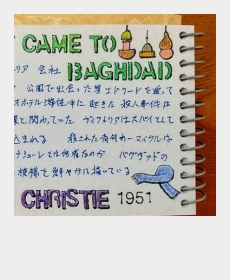 CAME TO
BAGHDAD
リア 会社
公園で出会った男エドワードを愛して
ホテル滞在中に起きた殺人事件は
と関わっていた ヴィクトリアはスパイとして
込まれる 殺された青年カーマイケルは
バグダッドの
模様を鮮やかに描いている
CHRISTIE 1951